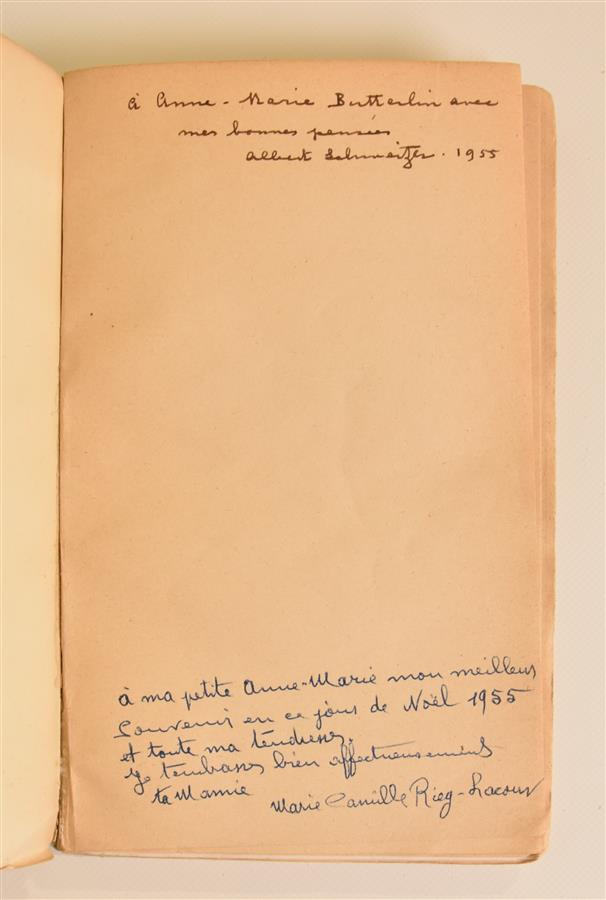 à Anne-Marie Butterlin avec
mes bonnes pensées
Albert Schweitzer. 1955
à ma petite Anne-Marie mon meilleur
Souvenir en ce jour de Noël 1955
et toute ma tendresse.
Je t'embrasse bien affectueusement
ta Mamie
Marie Camille Rieg-Lacour